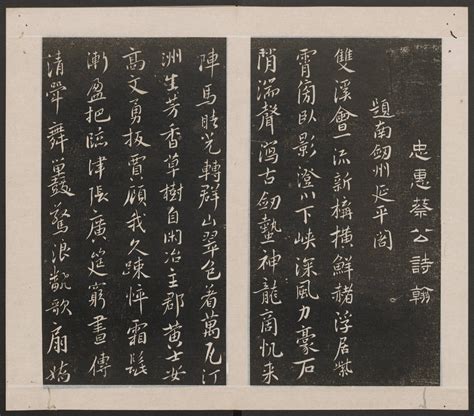 忠惠蔡公詩翰
題南劒州延平閣
雙溪會一流新構橫鮮赭浮居紫
霄傍臥影澄川下峽深風力豪石
陗湍聲瀉古劒蟄神龍商帆来
陣馬晴光轉群山翠色着萬瓦汀
洲生芳香草樹自閑冶主郡黄士安
高文勇扳賈顧我久踈悴霜髭
漸盈把臨津張廣筵窮晝傳
清斝舞鼉驚浪翻歌扇嬌